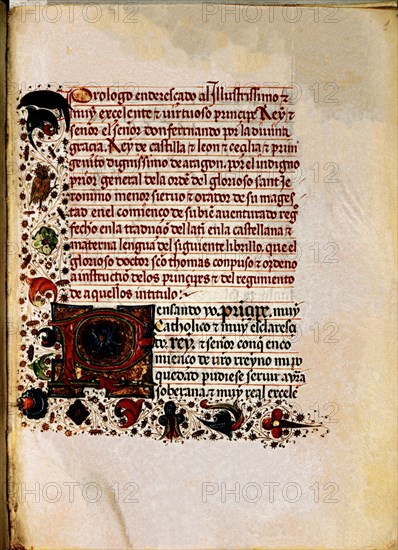 Prologo enderescado al Illustrissimo &
muy excelente & virtuoso principe Rey &
señor el señor don ferrnando por la diuina
gracia. Rey de castilla & leon & cecilia & prin
genito dignissimo de aragon. por el indigno
prior general de la ordẽ del glorioso sant Je
ronimo menor sieruo & orador de su mages
tad en el comienço de su biẽ auenturado reg
fecho en la traduçiõ del latĩ en la castellana &
materna lengua del siguiente librillo. que el
glorioso doctor scõ thomas conpuso & ordeno
a instructiõ de los principes & del regimiento
de aquellos intitulo:
Pensando yo, principe, muy
Catholico & muy esclaresçi
do, rey, & señor con q̃ enco
mienço de vr̃o reyno
quedado pudiese seruir a vr̃a
soberana & muy real excelẽ
PHOTO 12